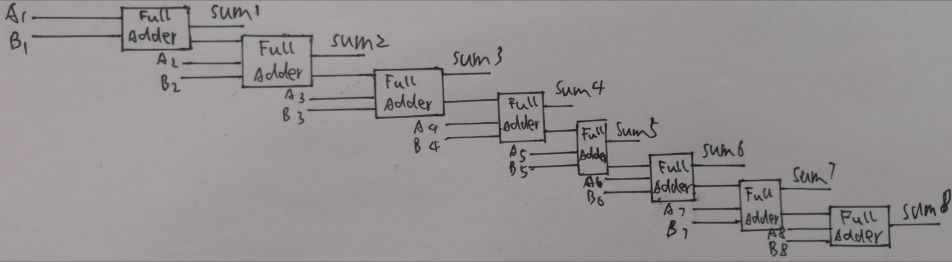 A1
B1
Full
Adder
sum1
A2
B2
Full
Adder
sum2
A3
B3
Full
Adder
sum3
A4
B4
Full
Adder
sum4
A5
B5
Full
Adder
sum5
A6
B6
Full
Adder
sum6
A7
B7
Full
Adder
sum7
A8
B8
Full
Adder
sum8